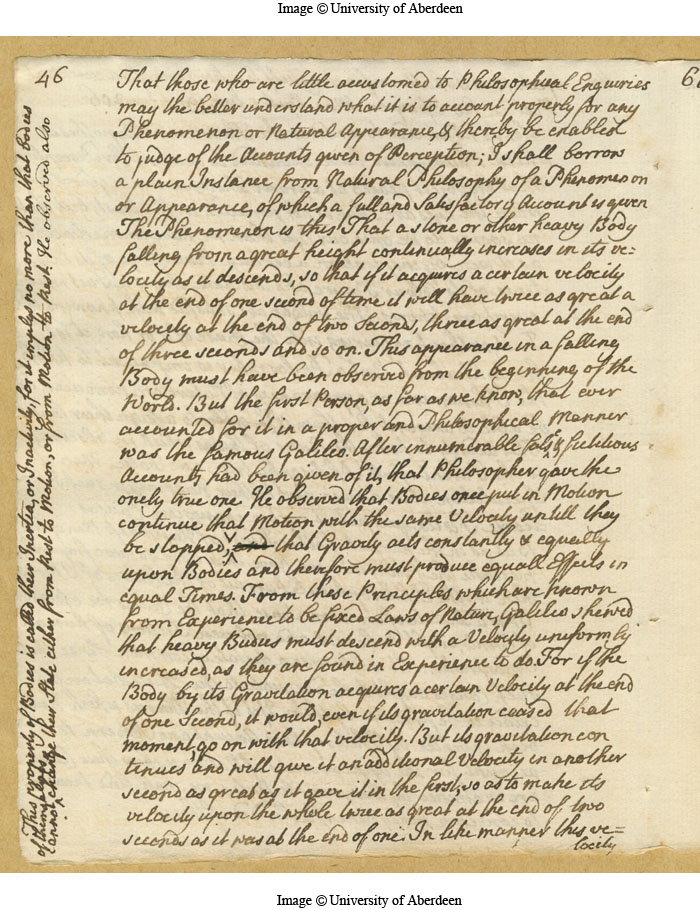 Image © University of Aberdeen
46
That those who are little accustomed to Philosophical Enquiries
may the better understand what it is to account properly for any
Phenomenon or Natural Appearance, & thereby be enabled
to judge of the Accounts given of Perception; I shall borrow
a plain Instance from Natural Philosophy of a Phenomenon
or Appearance, of which a full and Satisfactory Account is given
The Phenomenon is this That a stone or other heavy Body
falling from a great height continually increases in its ve=
locity as it descends, so that if it acquires a certain velocity
at the end of one second of time it will have twice as great a
velocity at the end of two Seconds, thrice as great at the end
of three seconds and so on. This appearance in a falling
Body must have been observed from the beginning of the
World. But the first Person, as far as we know, that ever
accounted for it in a proper and Philosophical Manner
was the famous Galileo. After innumerable false & fictitious
Accounts had been given of it, that Philosopher gave the
onely true one. He observed that Bodies once put in Motion
continue that Motion with the same Velocity untill they
be stopped, and that Gravity acts constantly & equally
upon Bodies and therefore must produce equall Effects in
equal Times. From these Principles which are known
from Experience to be fixed Laws of Nature, Galileo shewed
that heavy Bodies must descend with a Velocity uniformly
increased, as they are found in Experience to do. For if the
Body by its Gravitation acquires a certain Velocity at the end
of one Second, it would, even if its gravitation ceased that
moment, go on with that velocity. But its gravitation con
tinues and will give it an additional Velocity in another
second as great as it gave it in the first, so as to make its
velocity upon the whole twice as great at the end of two
seconds as it was at the end of one. In like manner this ve=
locity
This property of Bodies is called their Inertia, or Inactivity, for it implys no more than that Bodies
cannot change their State either from Rest to Motion, or from Motion to Rest. He observed also
Image © University of Aberdeen